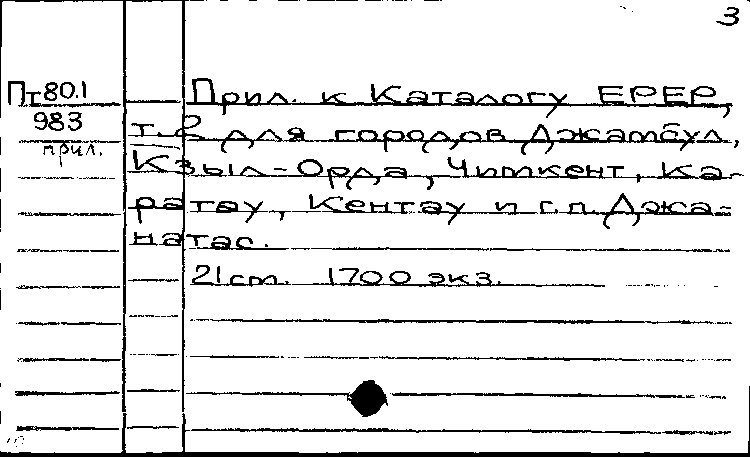 3
Пт80.1
983
прил.
Прил. к Каталогу ЕРЕР,
т.2 для городов Джамбул,
Кзыл-Орда, Чимкент, Ка-
ратау, Кентау и г.п. Джа-
натас.
21 ст. 1700 экз.